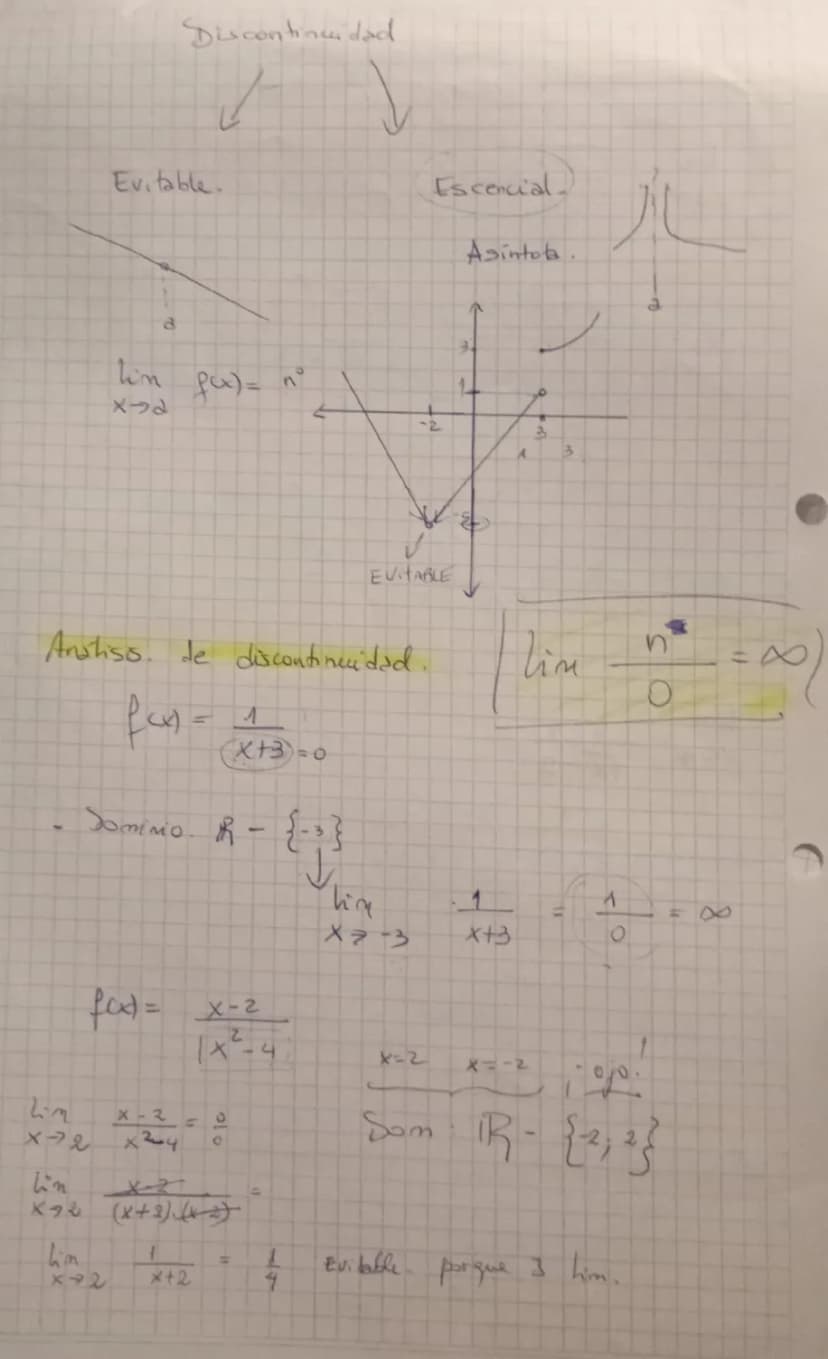 Discontinuidad
Evitable. Escencial.
Asíntota.
a
a
lim f(x) = n°
x→a
3
1
-2
3
1 3
EVITABLE
Análisis. de discontinuidad.
lim n / 0 = ∞
f(x) = 1 / x+3 = 0
- Dominio. R - {-3}
lim 1 / x+3 = 1 / 0 = ∞
x→-3
f(x) = x-2 / |x²-4
x=2 x=-2 ¡ojo!
lim x-2 / x²-4 = 0 / 0
x→2
Dom: R - {-2; 2}
lim x-2 / (x+2).(x-2) =
x→2
lim 1 / x+2 = 1 / 4 Evitable. porque ∃ lim.
x→2